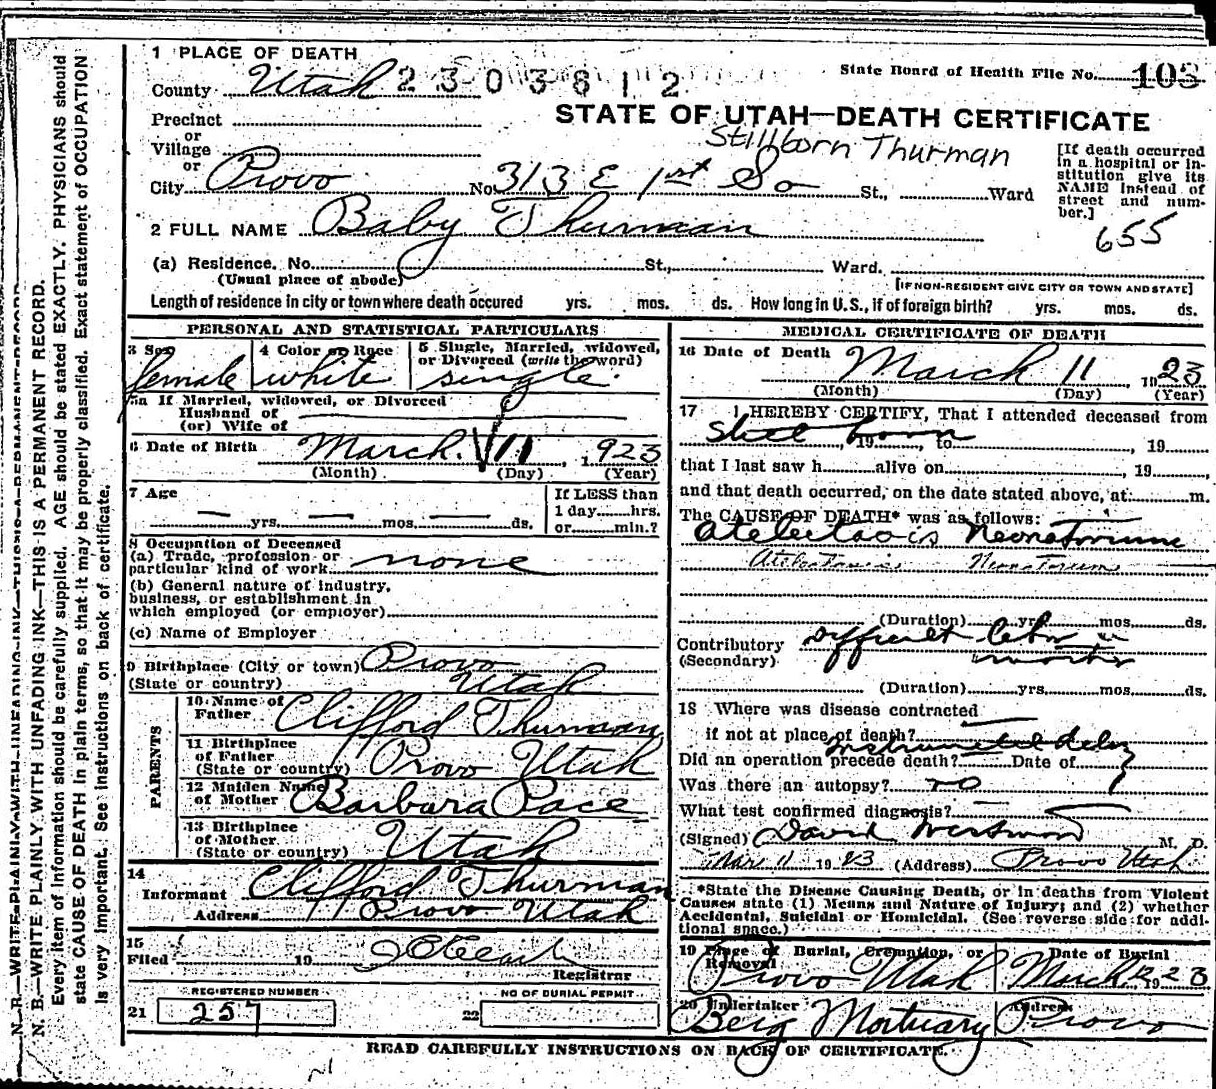 1 PLACE OF DEATH
County Utah 2303812
State Board of Health File No. 103
Precinct
STATE OF UTAH—DEATH CERTIFICATE
or
Village
Stillborn Thurman
or
City Provo No. 313 E 1st So St., Ward
[If death occurred in a hospital or institution give its NAME instead of street and number.]
655
2 FULL NAME Baby Thurman
(a) Residence. No. St., Ward.
(Usual place of abode)
[IF NON-RESIDENT GIVE CITY OR TOWN AND STATE]
Length of residence in city or town where death occured yrs. mos. ds. How long in U.S., if of foreign birth? yrs. mos. ds.
PERSONAL AND STATISTICAL PARTICULARS
3 Sex
female
4 Color or Race
white
5 Single, Married, widowed, or Divorced (write the word)
single
5a If Married, widowed, or Divorced
Husband of
(or) Wife of
6 Date of Birth March 11, 1923
(Month) (Day) (Year)
7 Age
— yrs. — mos. — ds.
If LESS than
1 day hrs.
or min.?
8 Occupation of Deceased
(a) Trade, profession or
particular kind of work none
(b) General nature of industry,
business, or establishment in
which employed (or employer)
(c) Name of Employer
9 Birthplace (City or town) Provo
(State or country) Utah
PARENTS
10 Name of Father Clifford Thurman
11 Birthplace of Father
(State or country) Provo Utah
12 Maiden Name of Mother Barbara Pace
13 Birthplace of Mother
(State or country) Utah
14
Informant Clifford Thurman
Address Provo Utah
15
Filed 19
Registrar
REGISTERED NUMBER
21 257
NO OF BURIAL PERMIT
22
MEDICAL CERTIFICATE OF DEATH
16 Date of Death March 11, 1923
(Month) (Day) (Year)
17 I HEREBY CERTIFY, That I attended deceased from
Still born, 19 to , 19
that I last saw h alive on , 19
and that death occurred, on the date stated above, at m.
The CAUSE OF DEATH* was as follows:
Atelectasis Neonatorium
Neonatorum
(Duration) yrs. mos. ds.
Contributory Difficult labor
(Secondary)
(Duration) yrs. mos. ds.
18 Where was disease contracted
if not at place of death?
Did an operation precede death? Instrumental dely Date of
Was there an autopsy? no
What test confirmed diagnosis?
(Signed) David Westwood M. D.
Mar 11 1923 (Address) Provo Utah
*State the Disease Causing Death, or in deaths from Violent
Causes state (1) Means and Nature of Injury; and (2) whether
Accidental, Suicidal or Homicidal. (See reverse side for addi-
tional space.)
19 Place of Burial, Cremation, or Removal
Provo Utah
Date of Burial
March 12 1923
20 Undertaker
Berg Mortuary
Address
Provo
READ CAREFULLY INSTRUCTIONS ON BACK OF CERTIFICATE.
N. B.—WRITE PLAINLY WITH UNFADING INK—THIS IS A PERMANENT RECORD.
Every item of information should be carefully supplied. AGE should be stated EXACTLY. PHYSICIANS should
state CAUSE OF DEATH in plain terms, so that it may be properly classified. Exact statement of OCCUPATION
is very important. See instructions on back of certificate.